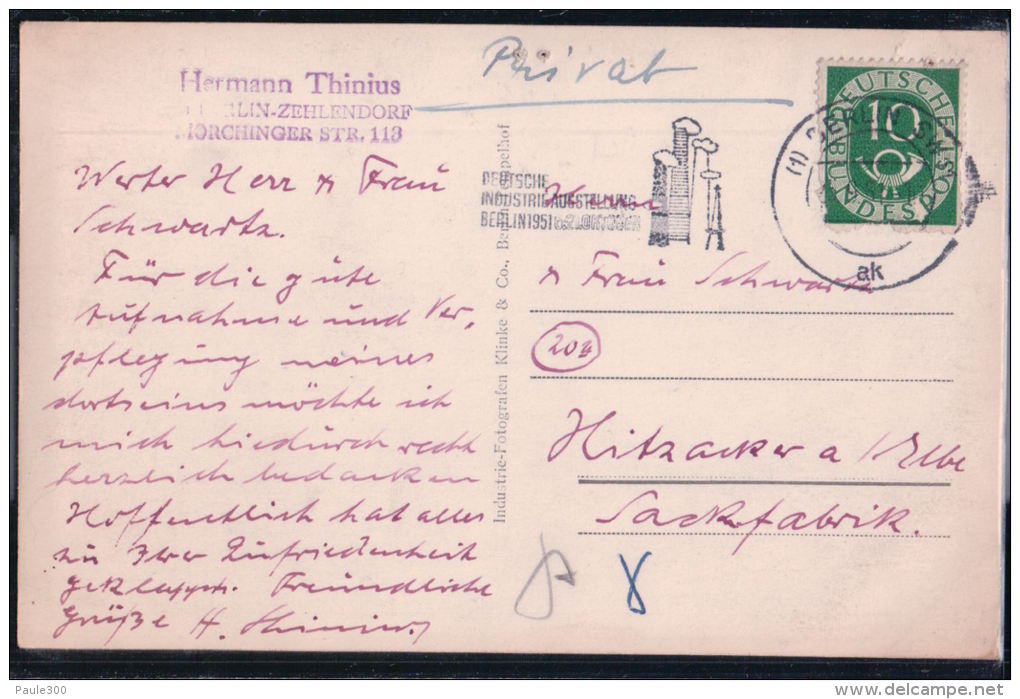 Privat
Hermann Thinius
BERLIN-ZEHLENDORF
MÖRCHINGER STR. 113
Werter Herr & Frau
Schwartz.
Für die gute
Aufnahme und Ver,
pflegung meines
dortseins möchte ich
mich hiedurch recht
herzlich bedanken
Hoffentlich hat alles
zu Ihrer Zufriedenheit
geklappt. Freundliche
Grüße H. Thinius
Industrie-Fotografen Klinke & Co., Berlin-Tempelhof
DEUTSCHE
INDUSTRIE AUSSTELLUNG
BERLIN 1951
(1) BERLIN SW
ak
DEUTSCHE
10
BUNDESPOST
Herrn
& Frau Schwartz
20a
Hitzacker a/Elbe
Sackfabrik.
8
Paule300
delcampe.net